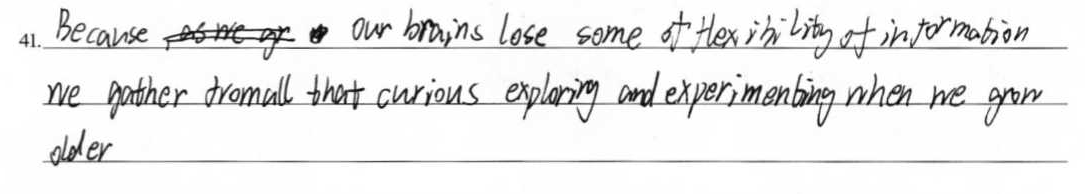 41. Because as we gr our brains lose some of flexibility of information
we gather from all that curious exploring and experimenting when we grow
older